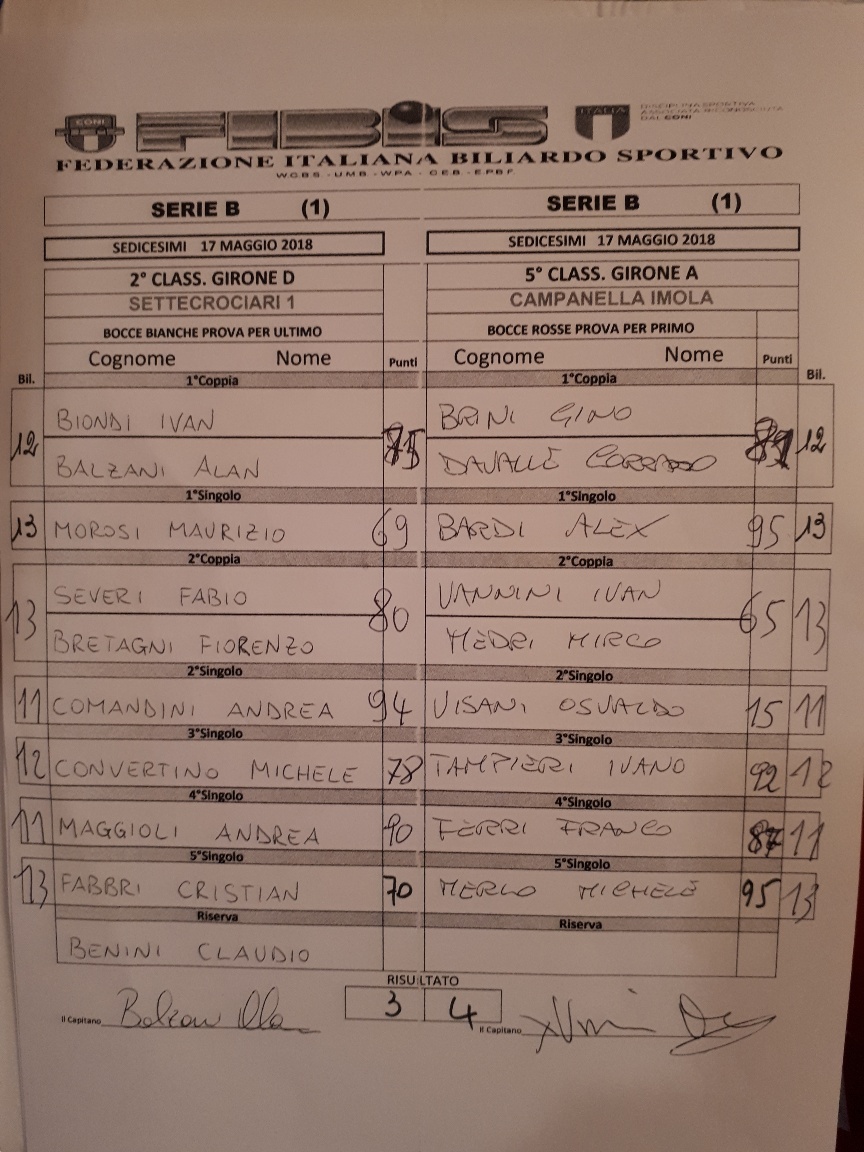 CONI FIBiS ITALIA DISCIPLINA SPORTIVA
ASSOCIATA RICONOSCIUTA
DAL CONI
FEDERAZIONE ITALIANA BILIARDO SPORTIVO
W.C.B.S - U.M.B - W.P.A - C.E.B - E.P.B.F.
SERIE B (1) SERIE B (1)
SEDICESIMI 17 MAGGIO 2018 SEDICESIMI 17 MAGGIO 2018
2° CLASS. GIRONE D 5° CLASS. GIRONE A
SETTECROCIARI 1 CAMPANELLA IMOLA
BOCCE BIANCHE PROVA PER ULTIMO BOCCE ROSSE PROVA PER PRIMO
Bil. Cognome Nome Punti Cognome Nome Punti Bil.
1°Coppia 1°Coppia
BIONDI IVAN BRINI GINO
12 75 12
BALZANI ALAN DAVALLE CORRADO
1°Singolo 1°Singolo
13 MOROSI MAURIZIO 69 BARDI ALEX 95 13
2°Coppia 2°Coppia
SEVERI FABIO VANNINI IVAN
13 80 65 13
BRETAGNI FIORENZO MEDRI MIRCO
2°Singolo 2°Singolo
11 COMANDINI ANDREA 94 VISANI OSVALDO 15 11
3°Singolo 3°Singolo
12 CONVERTINO MICHELE 78 TAMPIERI IVANO 92 12
4°Singolo 4°Singolo
11 MAGGIOLI ANDREA 90 FERRI FRANCO 87 11
5°Singolo 5°Singolo
13 FABBRI CRISTIAN 70 MERLO MICHELE 95 13
Riserva Riserva
BENINI CLAUDIO
RISULTATO
3 4
Il Capitano Il Capitano